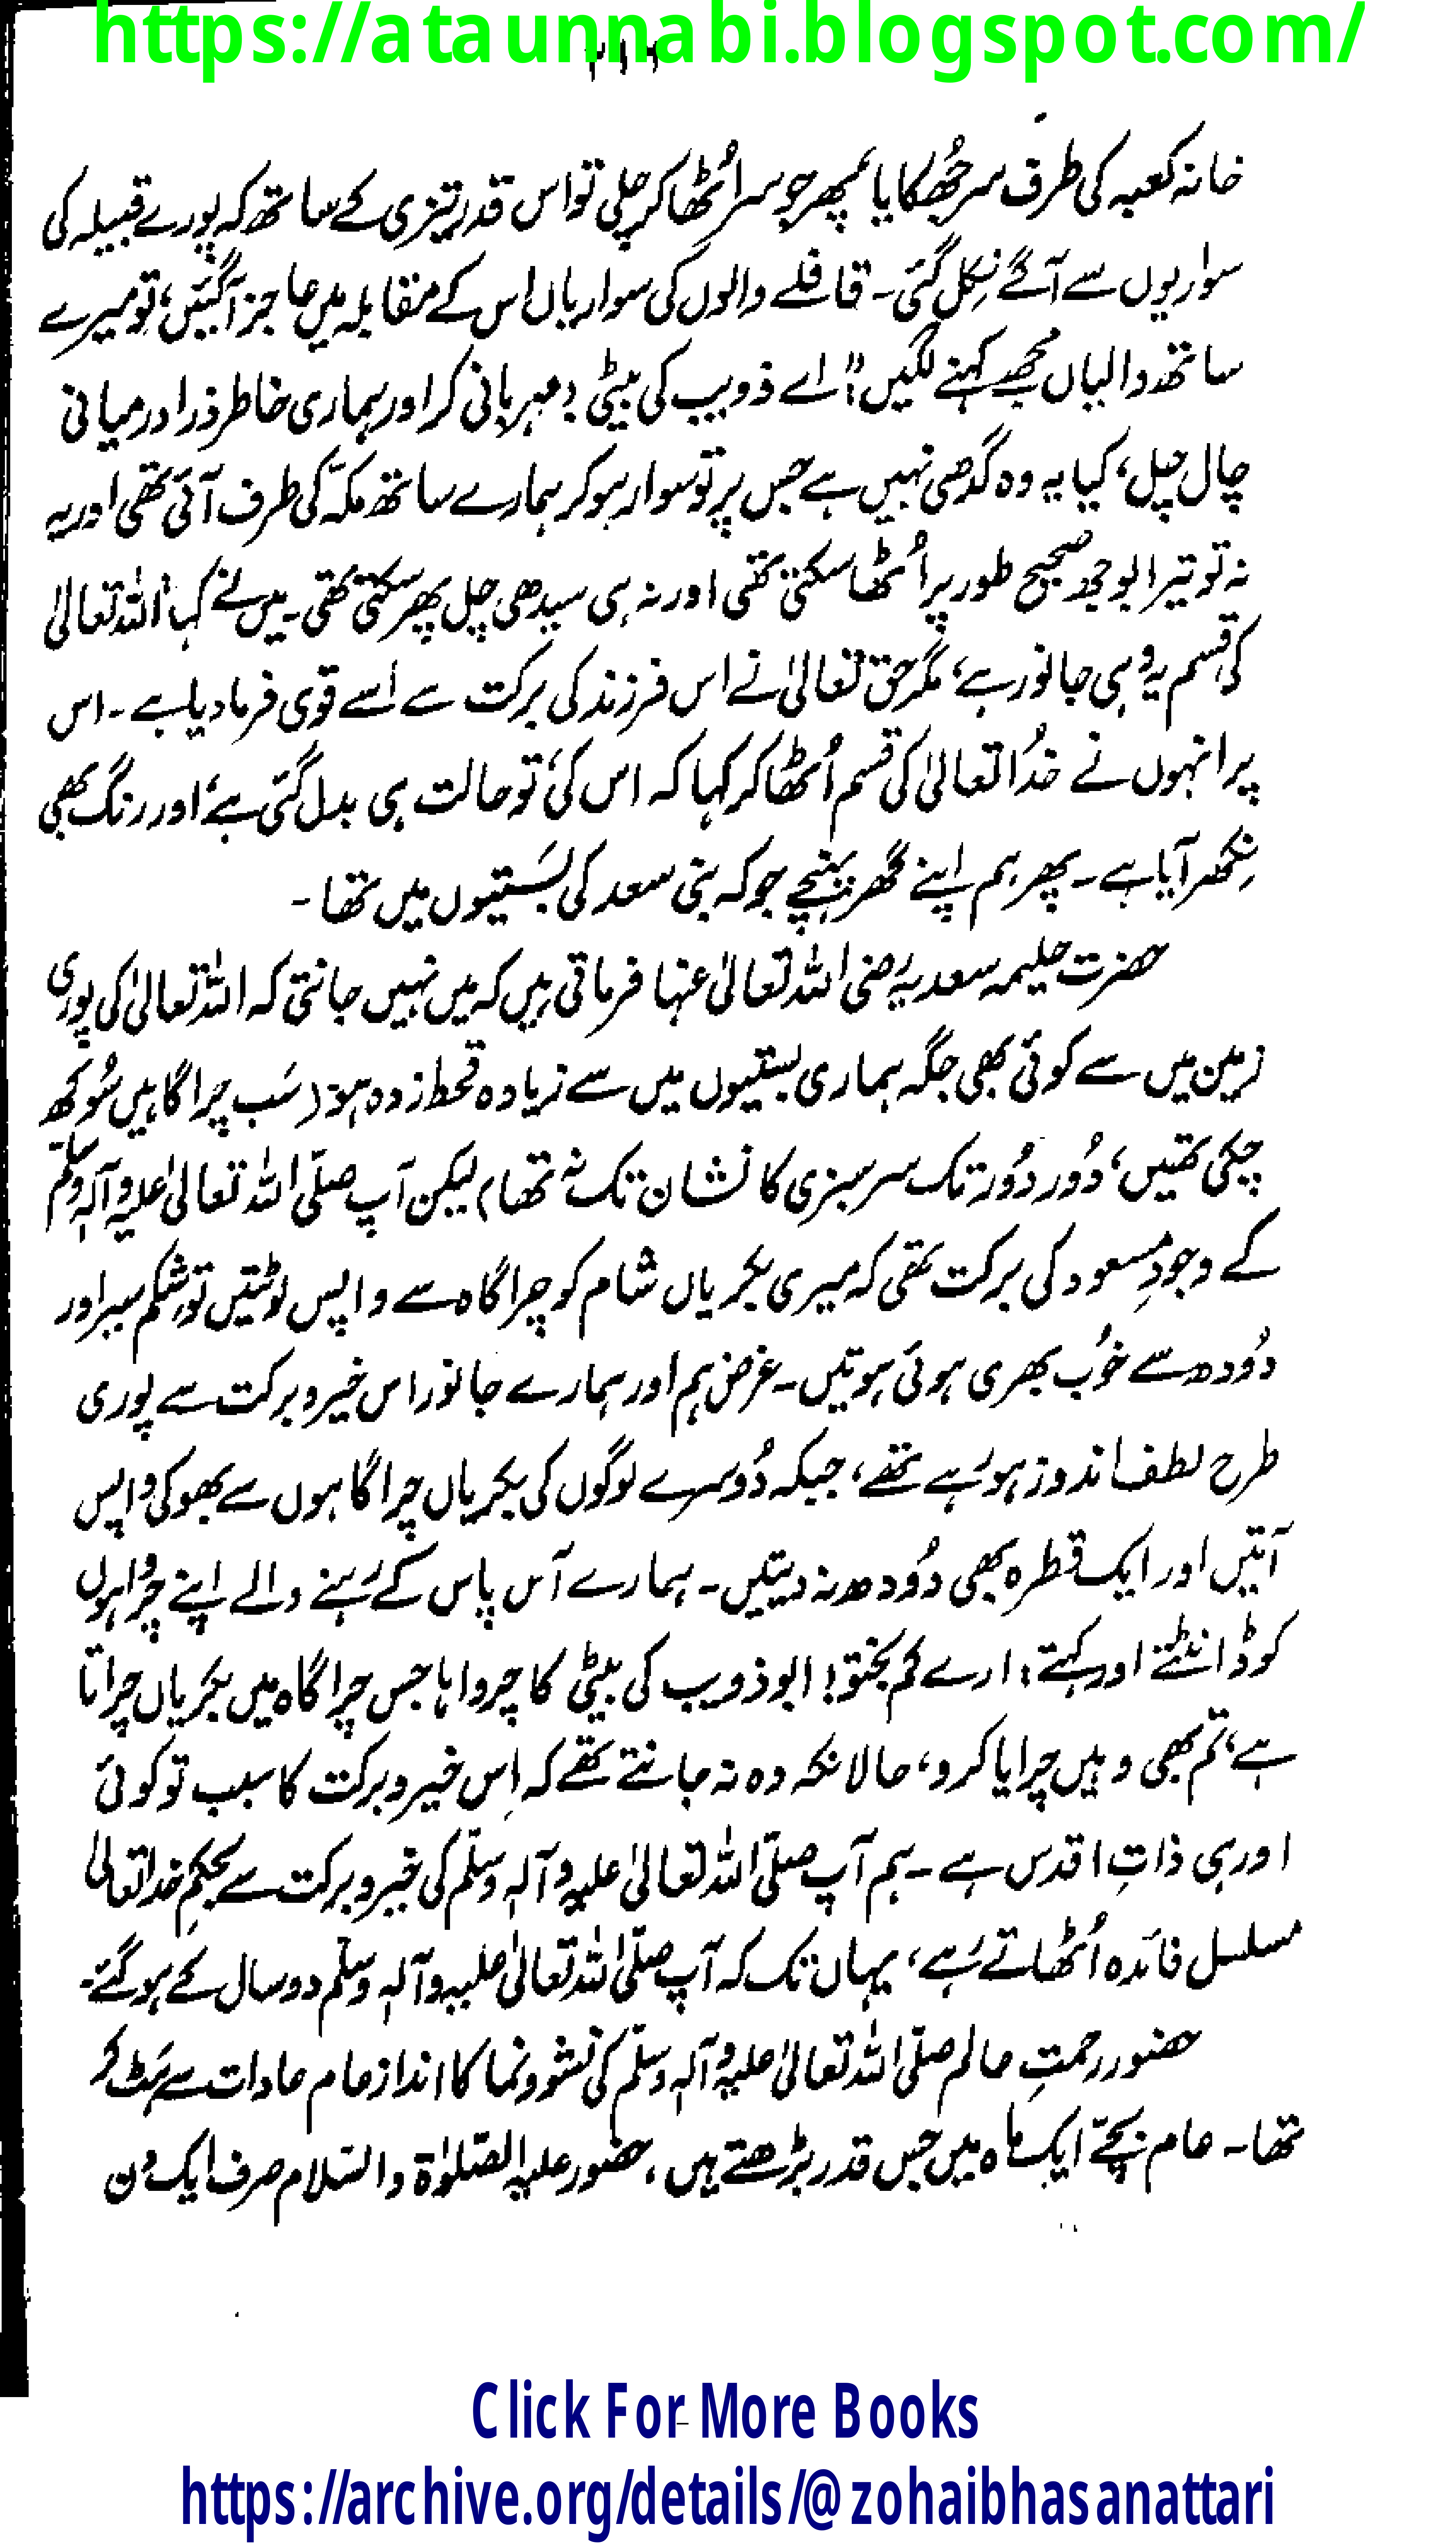 https://ataunnabi.blogspot.com/
خانہ کعبہ کی طرف سر جُھکایا، پھر جو سر اُٹھا کر چلی تو اس قدر تیزی کے ساتھ کہ پورے قبیلہ کی
سواریوں سے آگے نِکل گئی۔ قافلے والوں کی سواریاں اس کے مقابلہ میں عاجز آگئیں، تو میرے
ساتھ والیاں مجھے کہنے لگیں: "اے ذویب کی بیٹی! مہربانی کر اور ہماری خاطر ذرا درمیانی
چال چل، کیا یہ وہ گدھی نہیں ہے جس پر تو سوار ہو کر ہمارے ساتھ مکّہ کی طرف آئی تھی اور یہ
نہ تو تیرا بوجھ صحیح طور پر اُٹھا سکتی تھی اور نہ ہی سیدھی چل پھر سکتی تھی۔ میں نے کہا اللہ تعالیٰ
کی قسم یہ وہی جانور ہے، مگر حق تعالیٰ نے اس فرزند کی برکت سے اسے قوی فرما دیا ہے۔ اس
پر انہوں نے خُدا تعالیٰ کی قسم اُٹھا کر کہا کہ اس کی تو حالت ہی بدل گئی ہے، اور رنگ بھی
نِکھر آیا ہے۔ پھر ہم اپنے گھر پہنچے جو کہ بنی سعد کی بَستیوں میں تھا۔
حضرت حلیمہ سعدیہ رضی اللہ تعالیٰ عنہا فرماتی ہیں کہ میں نہیں جانتی کہ اللہ تعالیٰ کی پوری
زمین میں سے کوئی بھی جگہ ہماری بستیوں میں سے زیادہ قحط زدہ ہو (سَب چراگاہیں سُوکھ
چکی تھیں، دُور دُور تک سرسبزی کا نشان تک نہ تھا) لیکن آپ صلّی اللہ تعالیٰ علیہ وآلہٖ وسلّم
کے وجودِ مسعود کی برکت تھی کہ میری بکریاں شام کو چراگاہ سے واپس لوٹتیں تو شکم سیر اور
دُودھ سے خُوب بھری ہوئی ہوتیں۔ غرض ہم اور ہمارے جانور اس خیر و برکت سے پوری
طرح لطف اندوز ہو رَہے تھے، جبکہ دُوسرے لوگوں کی بکریاں چراگاہوں سے بھوکی واپس
آتیں اور ایک قطرہ بھی دُودھ نہ دیتیں۔ ہمارے آس پاس کے رَہنے والے اپنے چرواہوں
کو ڈانٹتے اور کہتے: ارے کم بختو! ابو ذویب کی بیٹی کا چرواہا جس چراگاہ میں بکریاں چراتا
ہے، تم بھی وہیں چرایا کرو، حالانکہ وہ نہ جانتے تھے کہ اِس خیر و برکت کا سبب تو کوئی
اور ہی ذاتِ اقدس ہے۔ ہم آپ صلّی اللہ تعالیٰ علیہ وآلہٖ وسلّم کی خیر و برکت سے بحکمِ خدا تعالیٰ
مسلسل فائدہ اُٹھاتے رَہے، یہاں تک کہ آپ صلّی اللہ تعالیٰ علیہ وآلہٖ وسلّم دو سال کے ہو گئے۔
حضور رحمتِ عالم صلّی اللہ تعالیٰ علیہ وآلہٖ وسلّم کی نشوونما کا انداز عام عادات سے ہَٹ کر
تھا۔ عام بچّے ایک ماہ میں جس قدر بڑھتے ہیں، حضور علیہ الصّلوٰۃ والسّلام صرف ایک دن
Click For More Books
https://archive.org/details/@zohaibhasanattari